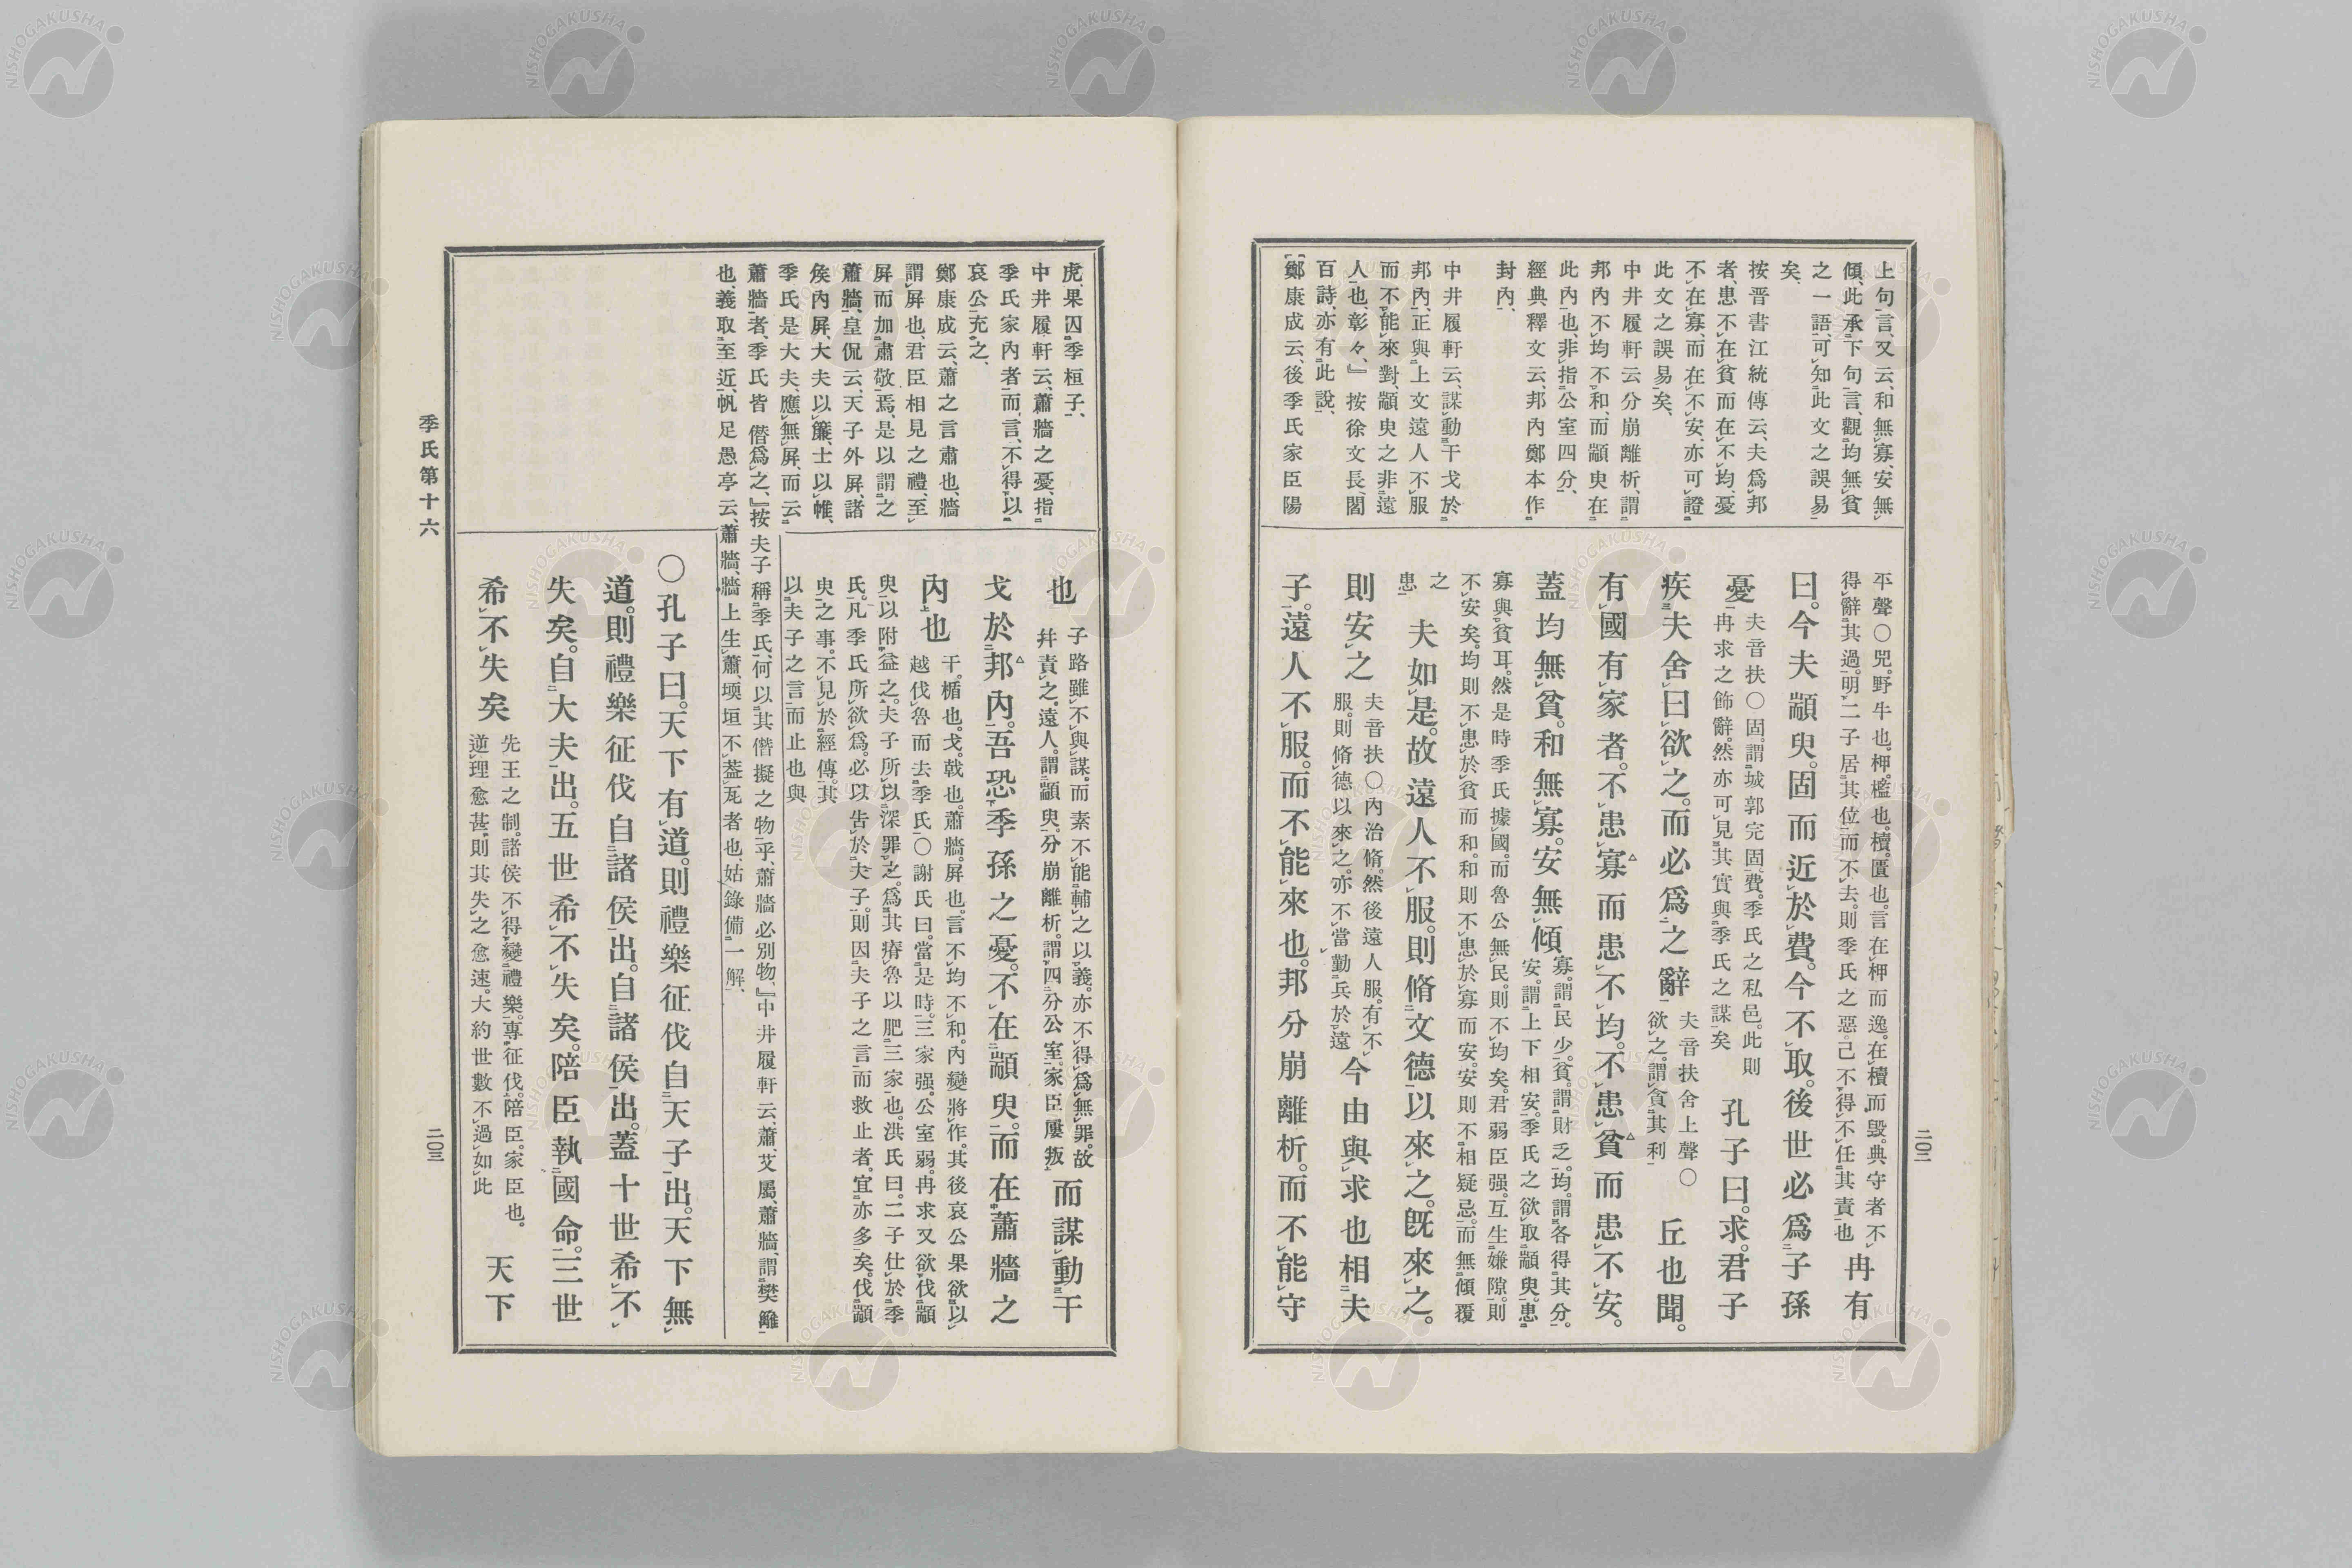 上句言、又云、和無寡、安無
傾、此承下句言、觀均無貧
之一語、可知此文之誤易
矣、
按晉書江統傳云、夫爲邦
者、患不在貧而在不均、憂
不在寡、而在不安、亦可證
此文之誤易矣、
中井履軒云分崩離析、謂
邦內不均不和、而顓臾在
此內也、非指公室四分、
經典釋文云、邦內鄭本作
封內、
中井履軒云、謀動干戈於
邦內、正與上文遠人不服
而不能來對、顓臾之非遠
人也、彰々、』按徐文長、閻
百詩、亦有此說、
鄭康成云、後季氏家臣陽
平聲○兕。野牛也。柙。檻也。櫝。匱也。言在柙而逸。在櫝而毀。典守者不
得辭其過。明二子居其位而不去。則季氏之惡。己不得不任其責也
冉有
曰。今夫顓臾。固而近於費。今不取。後世必爲子孫
憂
夫音扶○固。謂城郭完固。費。季氏之私邑。此則
冉求之飾辭。然亦可見其實與季氏之謀矣
孔子曰。求。君子
疾夫舍曰欲之。而必爲之辭
夫音扶舍上聲○
欲之。謂貪其利
丘也聞。
有國有家者。不患寡而患不均。不患貧而患不安。
蓋均無貧。和無寡。安無傾
寡。謂民少。貧。謂財乏。均。謂各得其分。
安。謂上下相安。季氏之欲取顓臾。患
寡與貧耳。然是時季氏據國。而魯公無民。則不均矣。君弱臣强。互生嫌隙。則
不安矣。均則不患於貧而和。和則不患於寡而安。安則不相疑忌。而無傾覆
之
患
夫如是。故遠人不服。則脩文德以來之。既來之。
則安之
夫音扶○內治脩。然後遠人服。有不
服。則脩德以來之。亦不當勤兵於遠
今由與求也相夫
子。遠人不服。而不能來也。邦分崩離析。而不能守
二〇二
虎、果囚季桓子、
中井履軒云、蕭牆之憂、指
季氏家內者、而言、不得以
哀公充之、
鄭康成云、蕭之言肅也、牆
謂屏也、君臣相見之禮、至
屏而加肅敬焉、是以謂之
蕭牆、皇侃云、天子外屏、諸
侯內屏、大夫以簾、士以帷、
季氏是大夫、應無屏、而云
蕭牆者、季氏皆僭爲之、』按夫子稱季氏、何以其僭擬之物乎、蕭牆必別物、』中井履軒云、蕭、艾屬、蕭牆、謂樊籬
也、義取至近、帆足愚亭云、蕭牆、牆上生蕭、堧垣不葢瓦者也、姑錄備一解、
也
子路雖不與謀。而素不能輔之以義。亦不得爲無罪。故
幷責之。遠人。謂顓臾。分崩離析。謂四分公室、家臣屢叛
而謀動干
戈於邦內。吾恐季孫之憂。不在顓臾。而在蕭牆之
內也
干。楯也。戈。戟也。蕭牆。屏也。言不均不和。內變將作。其後哀公果欲以
越伐魯而去季氏○謝氏曰。當是時。三家强。公室弱。冉求又欲伐顓
臾以附益之。夫子所以深罪之。爲其瘠魯以肥三家也。洪氏曰。二子仕於季
氏。凡季氏所欲爲。必以告於夫子。則因夫子之言。而救止者。宜亦多矣。伐顓
臾之事。不見於經傳。其
以夫子之言而止也與
○孔子曰。天下有道。則禮樂征伐自天子出。天下無
道。則禮樂征伐自諸侯出。自諸侯出。蓋十世希不
失矣。自大夫出。五世希不失矣。陪臣執國命。三世
希不失矣
先王之制。諸侯不得變禮樂。專征伐。陪臣。家臣也。
逆理愈甚。則其失之愈速。大約世數不過如此
天下
季氏第十六
二〇三